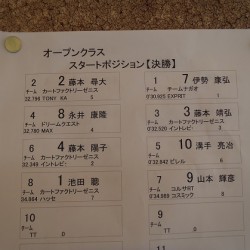 オープンクラス
スタートポジション【決勝】
2 2 藤本 尋大
チーム カートファクトリーゼニス
32.798 TONY KA 2
1 7 伊勢 康弘
チーム チームナガオ
0'30.925 EXPRIT 1
4 8 永井 康隆
チーム ドリームクエスト
32.780 MAX 4
3 3 藤本 靖弘
チーム カートファクトリーゼニス
0'32.521 イントレピ 3
6 4 藤本 陽子
チーム カートファクトリーゼニス
34.248 イントレピ 6
5 10 漢手 亮治
チーム
0'32.842 ビレル 5
8 1 池田 聡
チーム カートファクトリーゼニス
34.884 ハッセ 7
7 9 山本 輝彦
チーム コルサRT
0'34.769 コスミック 8
10
チーム
TT 0
9
チーム
TT 0
12
11